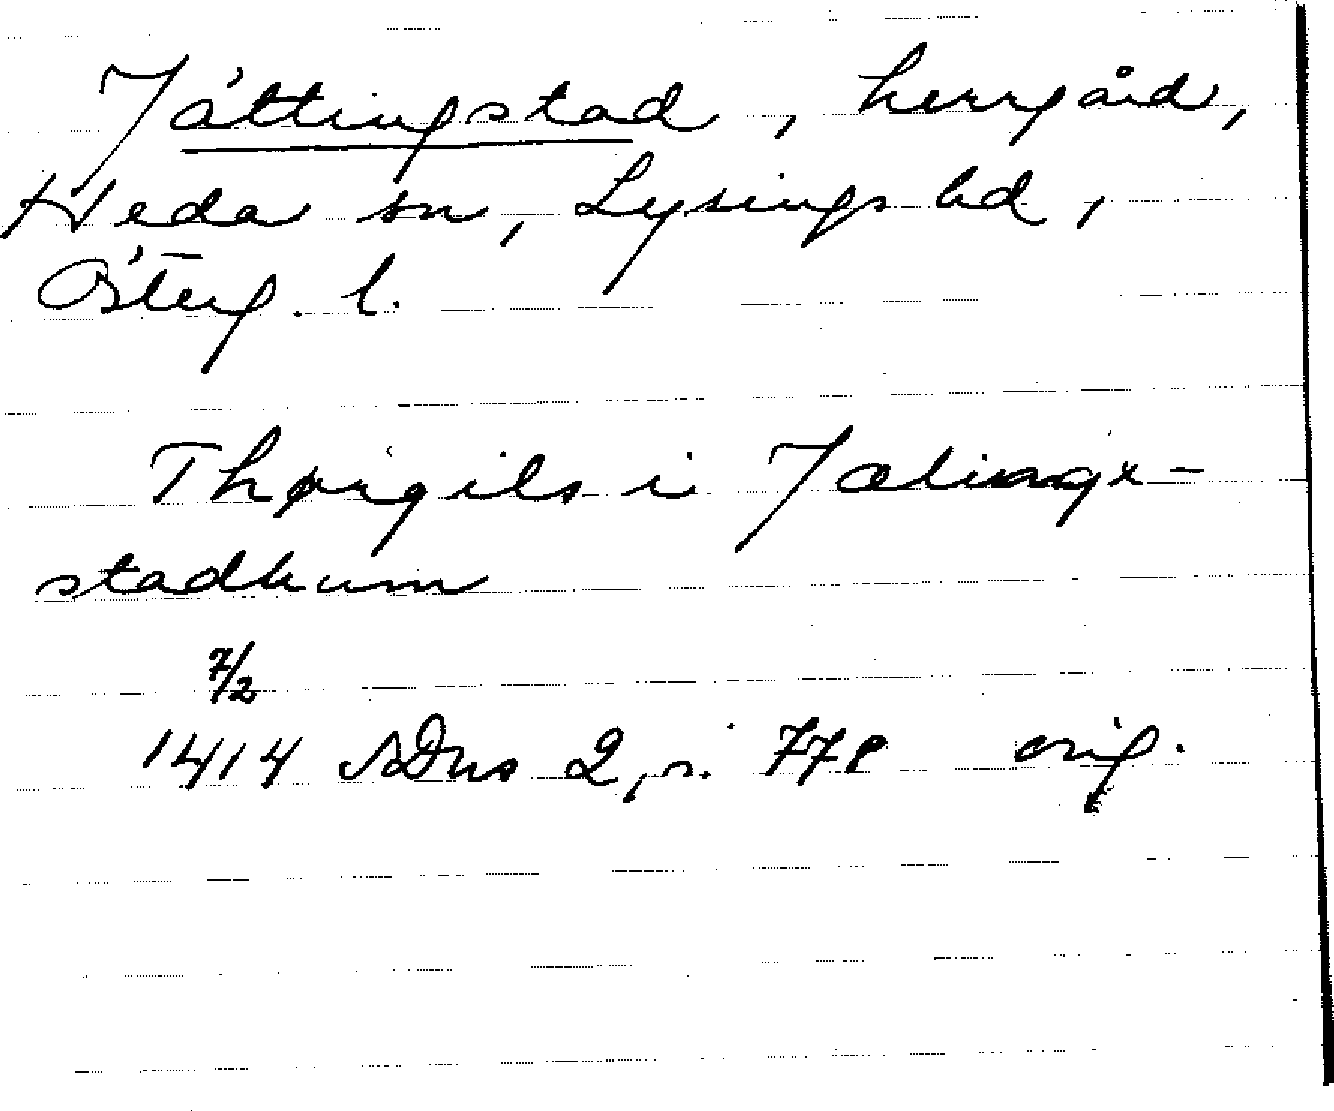 Jättingstad, herrgård,
Heda sn, Lysings hd,
Österg. l.
Thørgils i Jælinge-
stadhum
7/2
1414 SDns 2, s. 778 orig.